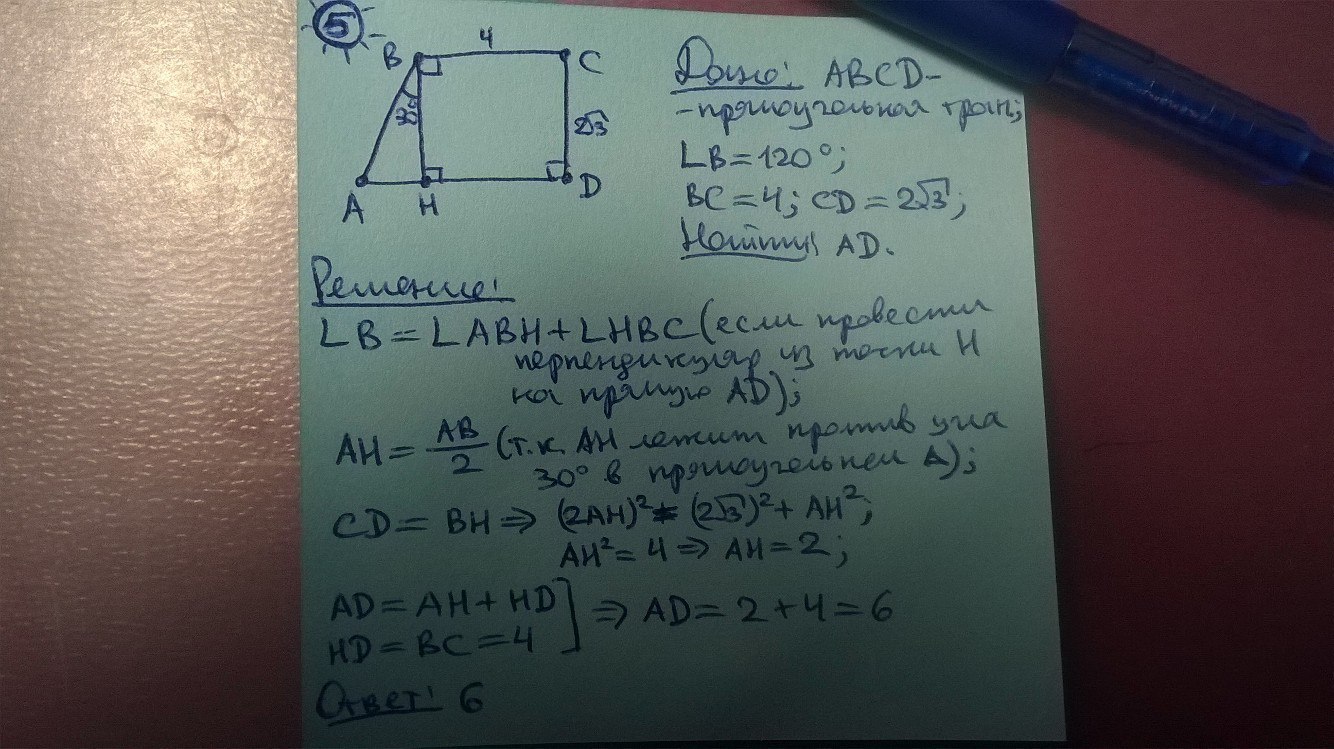 5
4
B
C
30°
2√3
A
H
D
Дано: ABCD-
-прямоугольная трап;
∠B=120°;
BC=4; CD=2√3;
Найти: AD.
Решение:
∠B=∠ABH+∠HBC(если провести
перпендикуляр из точки H
на прямую AD);
AH=AB/2 (т.к. AH лежит против угла
30° в прямоугольнем ∆);
CD=BH⇒ (2AH)²=(2√3)²+AH²;
AH²=4⇒AH=2;
AD=AH+HD] ⇒ AD=2+4=6
HD=BC=4
Ответ: 6